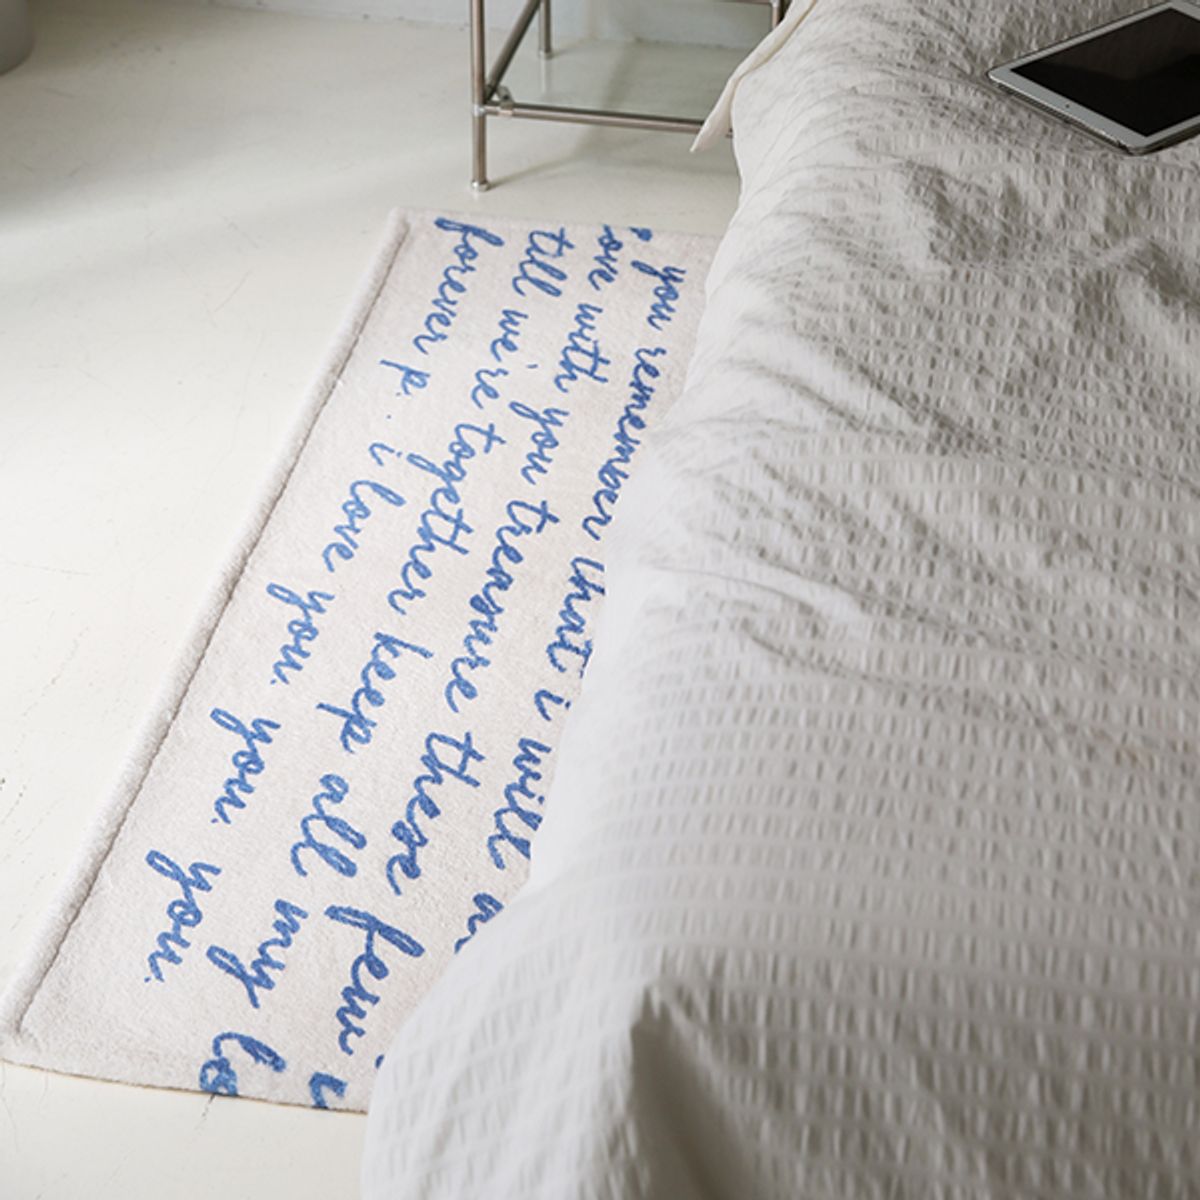 you remember that i will
ove with you treasure these few
till we're together keep all my lo
forever p. i love you. you. you.